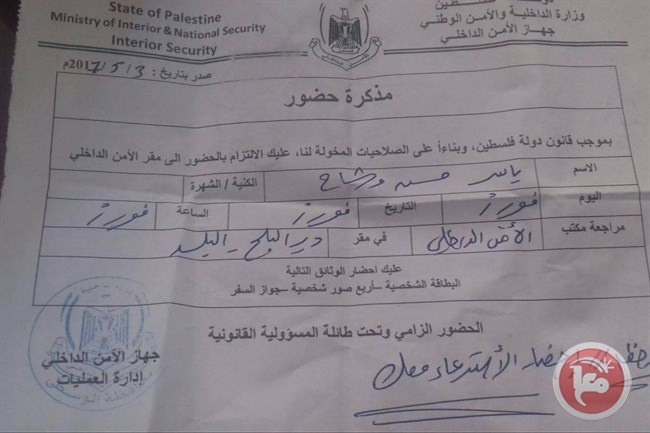 State of Palestine
Ministry of Interior & National Security
Interior Security
وزارة الداخلية والأمن الوطني
جهاز الأمن الداخلي
صدر بتاريخ : 3 / 5 / 2017م
مذكرة حضور
بموجب قانون دولة فلسطين، وبناءاً على الصلاحيات المخولة لنا، عليك الالتزام بالحضور الى مقر الأمن الداخلي
الاسم ياسر حسن وشاح الكنية / الشهرة
اليوم فوراً التاريخ فوراً الساعة فوراً
مراجعة مكتب الأمن الداخلي في مقر دير البلح - البلد
عليك احضار الوثائق التالية
البطاقة الشخصية –أربع صور شخصية –جواز السفر
الحضور الزامي وتحت طائلة المسؤولية القانونية
جهاز الأمن الداخلي
إدارة العمليات
الأستدعاء معك
معا